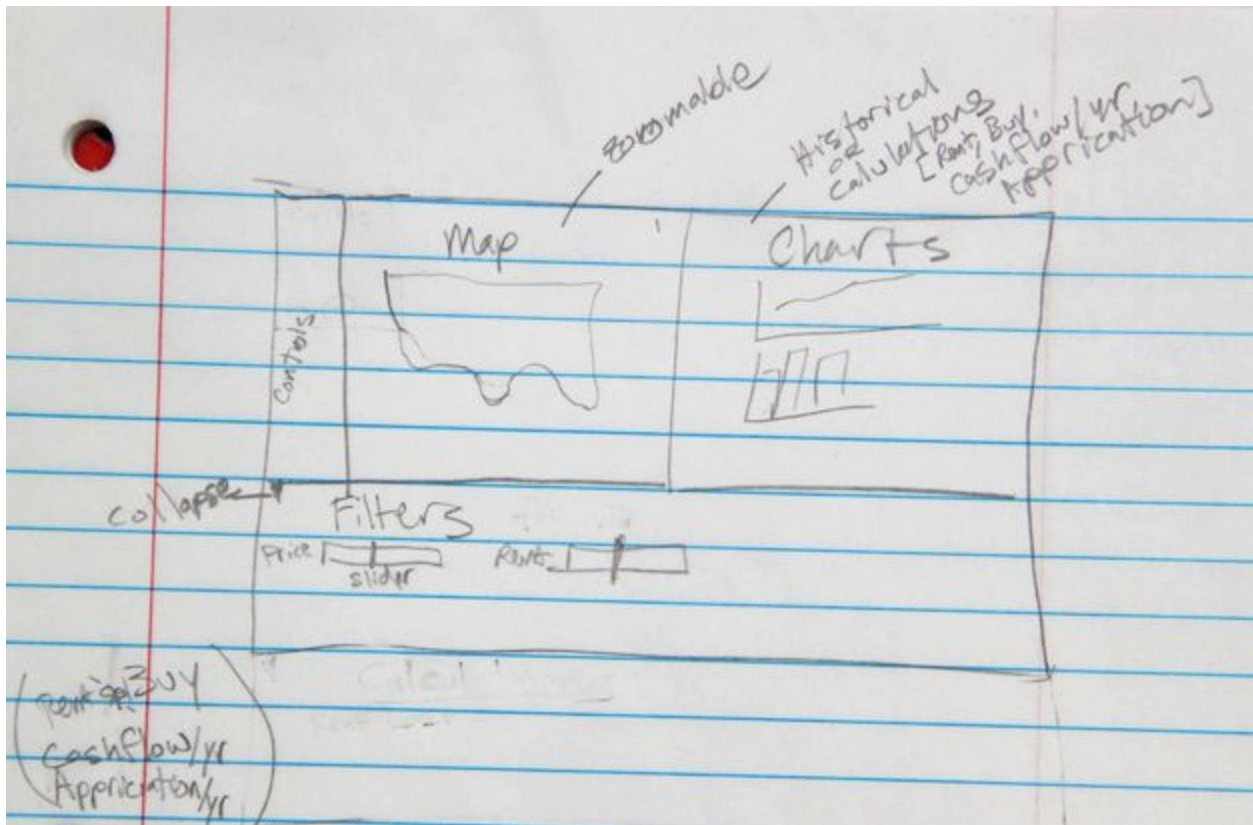 zoomable
Historical
or
Calculations
[Rent, Buy,
Cashflow/yr
Apprication]
Map
Charts
Controls
Collapse
Filters
Price
slider
Rent
Calcul
Rent
Buy
Cashflow/yr
Apprication/yr